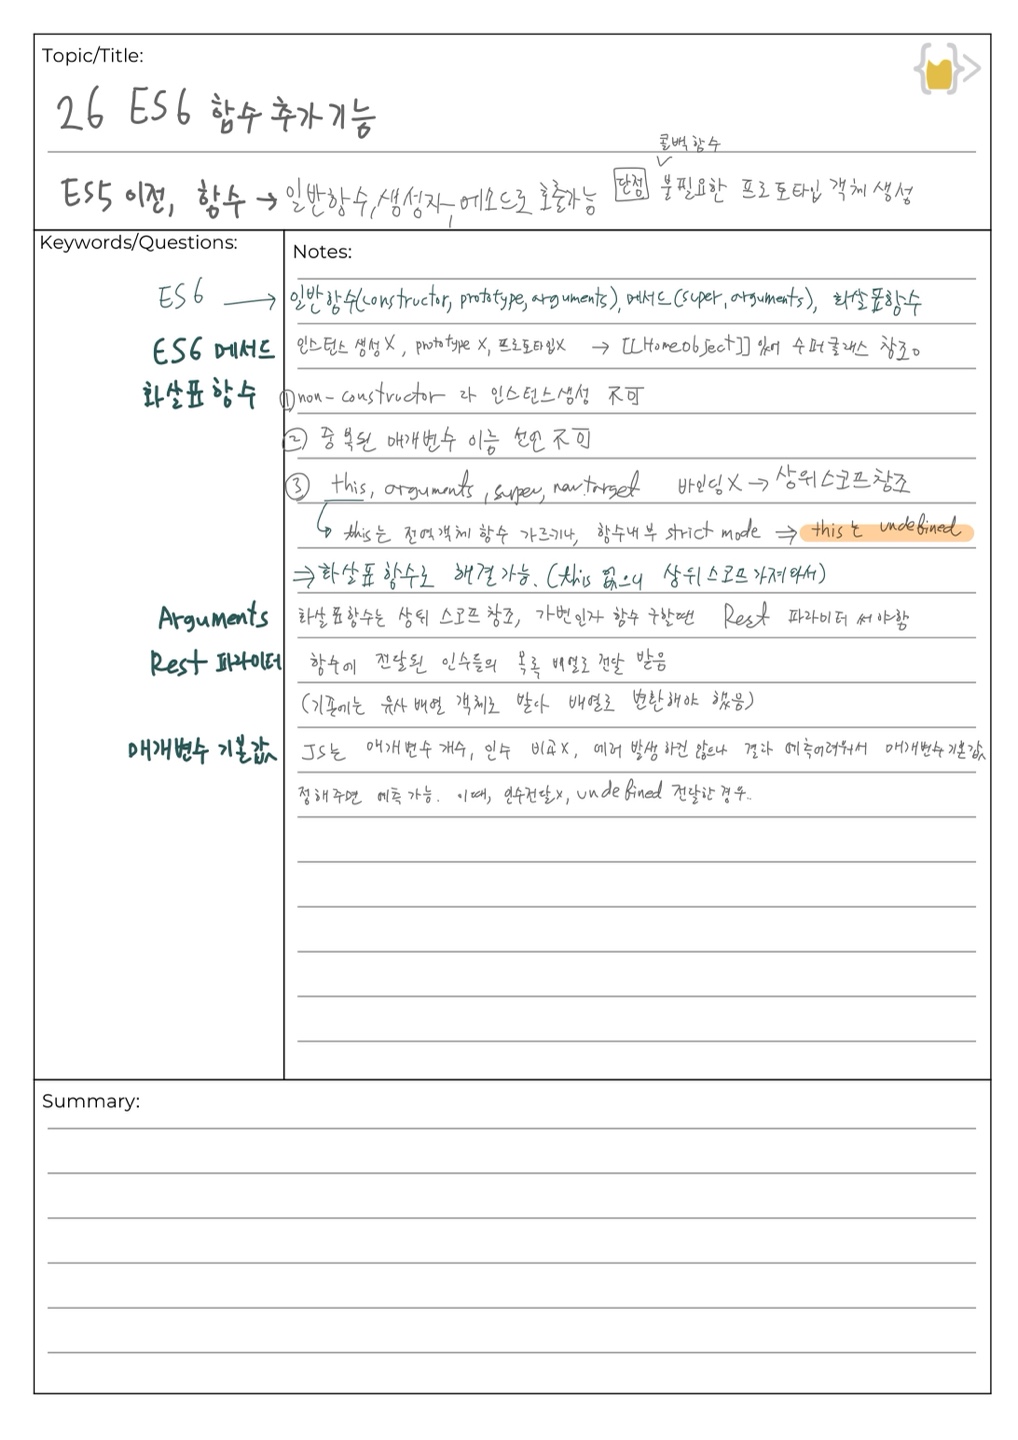 Topic/Title:
26 ES6 함수 추가기능
콜백함수
ES5 이전, 함수 → 일반함수, 생성자, 메소드로 호출가능 단점 불필요한 프로토타입 객체 생성
Keywords/Questions:
Notes:
ES6 → 일반함수(constructor, prototype, arguments), 메서드(super, arguments), 화살표함수
ES6 메서드 인스턴스 생성X, prototype X, 프로토타입X → [[Homeobject]] 있어 수퍼클래스 참조.
화살표 함수 ① non-constructor 라 인스턴스생성 不可
② 중복된 매개변수 이름 선언 不可
③ this, arguments, super, new.target 바인딩X → 상위스코프참조
↳ this는 전역객체 함수 가르키나, 함수내부 strict mode ⇒ this는 undefined
⇒ 화살표 함수로 해결가능. (this 없으니 상위스코프 가져와서)
Arguments 화살표함수는 상위 스코프 참조, 가변인자 함수 구할땐 Rest 파라미터 써야함
Rest 파라미터 함수에 전달된 인수들의 목록 배열로 전달 받음
(기존에는 유사 배열 객체로 받다 배열로 변환해야 했음)
매개변수 기본값 JS는 매개변수 개수, 인수 비교X, 에러 발생하진 않으나 결과 예측어려워서 매개변수기본값
정해주면 예측 가능. 이때, 인수전달X, undefined 전달한 경우..
Summary: